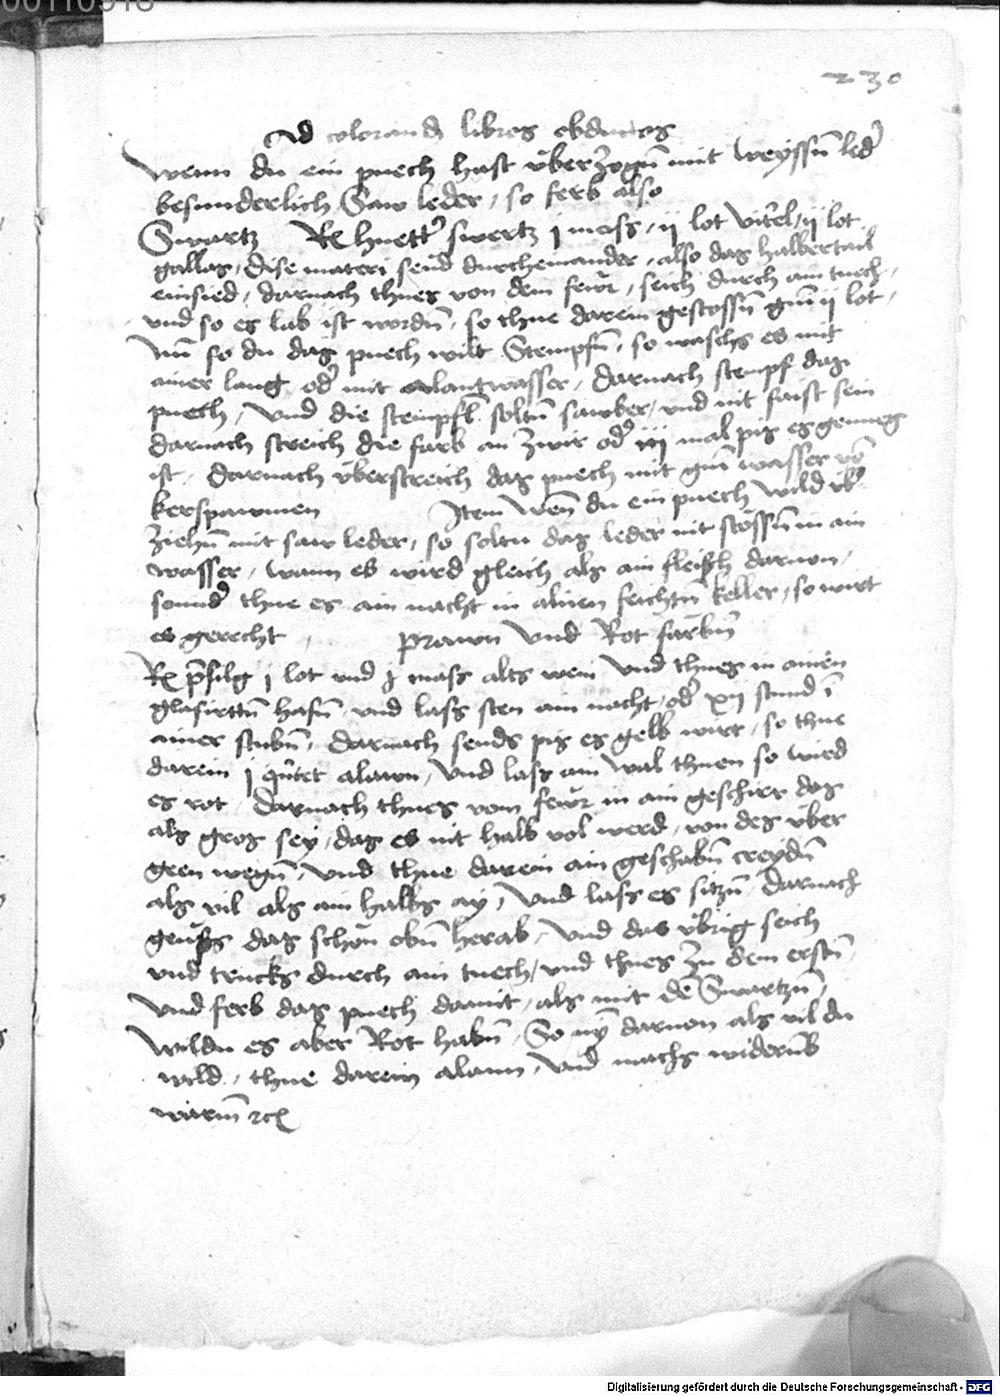 00110918
230
Ad colorandū libros obductos
Wenn du ein puech hast überzogn̄ mit weyssn̄ led'
besunderlich Saw leder, so ferb also
Swartz Rx huett' swertz j mass, ij lot vitrel, ij lot
gallas, dise materi seud durcheinander, also das halbertail
einsied, darnach thues von dem fewr, seich durch ain tuech,
vnd so es lab ist wordn̄, so thue darein gestossn̄ gūi ij lot,
Nu so du das puech wilt Stempfn̄, so waschs es mit
ainer laug, od' mit alantwasser, darnach stempf das
puech, vnd die stempfl soltn̄ sawber, vnd nit faist sein
darnach streich die farb an zwir od' iij mal pis es genueg
ist, darnach überstreich das puech mit gūi wasser vō
kerspawmen Item wen̄ du ein puech wild üb'
ziehn̄ mit saw leder, so soltu das leder nit stossn̄ in ain
wasser, wann es wird gleich als ain fleisch daruon,
sonnd' thue es ain nacht in ainen feichtn̄ keller, so wirt
es gerecht prawn vnd Rot farbn̄
Rx p̄silg j lot vnd j mass alts wein vnd thues in ainen
glasirttn̄ hafn̄ vnd lass sten ain nacht, od' xij stund ī
ainer stubn̄, darnach seuds pis es gelb wirt, so thue
darein j q̄ntet alawn, vnd lass ain wal thuen so wird
es rot, darnach thues vom fewr in ain geschirr das
als gros sey, das es nit halb vol werd, von des über
geen wegn̄, vnd thue darein ain geschabn̄ creydn̄
als vil als ain halbs ay, vnd lass es sitzn̄, darnach
geuss das schön obn̄ herab, vnd das übrig seich
vnd trucks durch ain tuech, vnd thues zu dem erstn̄,
vnd ferb das puech damit, als mit dē Swartzn̄,
Wildu es aber Rot habn̄, So nȳ daruon als vil du
wild, thue darein alaun, vnd machs widerūb
warm̄ ꝛc
Digitalisierung gefördert durch die Deutsche Forschungsgemeinschaft - DFG